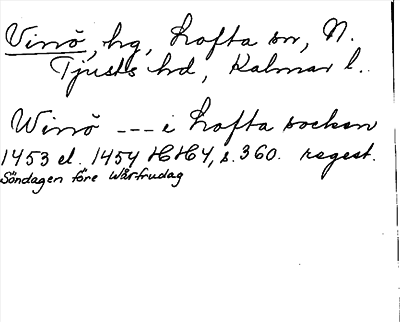 Vinö, hg, Lofta sn, N.
Tjusts hd, Kalmar l.
Winö --- i Lofta socken
1453 el. 1454 HH4, s. 360. regest.
Söndagen före Wårfrudag